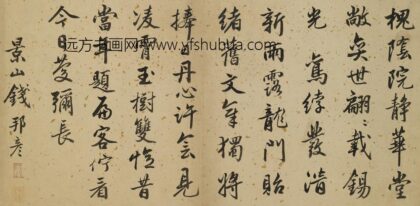 槐陰院静華堂
敞奕世翩翩載錫
光寫綍叢清
新雨露龍門貽
緒舊文章獨將
捧丹心許會見
凌霄玉樹雙恰昔
當年題
今日慶彌長
景山錢邦彥
远方画网www.yfshuhua.com